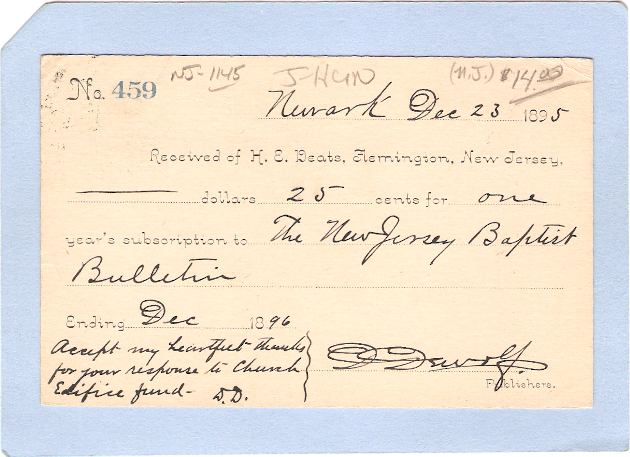 NJ-1145 J-HUN (N.J.) $14.00
No. 459
Newark Dec 23 1895
Received of H. E. Deats, Flemington, New Jersey,
dollars 25 cents for one
year's subscription to The New Jersey Baptist
Bulletin
Ending Dec 1896
Accept my heartfelt thanks
for your response to Church
Edifice fund- D.D.
D Dewolf.
Publishers.